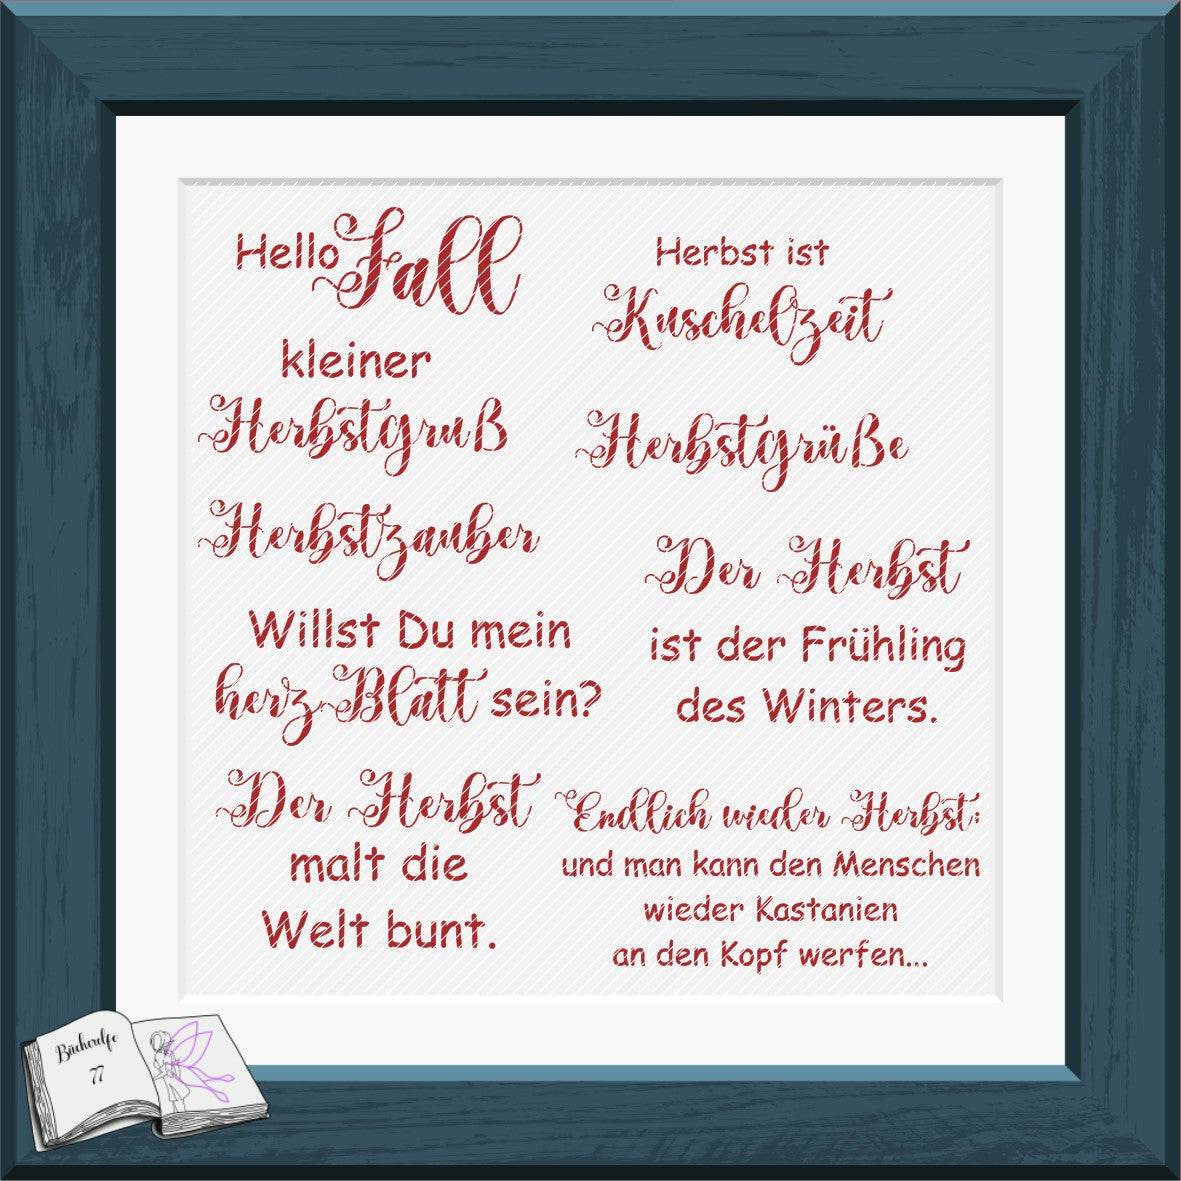 Hello Fall
kleiner
Herbstgruß
Herbstzauber
Willst Du mein
herz-Blatt sein?
Der Herbst
malt die
Welt bunt.
Herbst ist
Kuschelzeit
Herbstgrüße
Der Herbst
ist der Frühling
des Winters.
Endlich wieder Herbst:
und man kann den Menschen
wieder Kastanien
an den Kopf werfen...
Bücherelfe
77